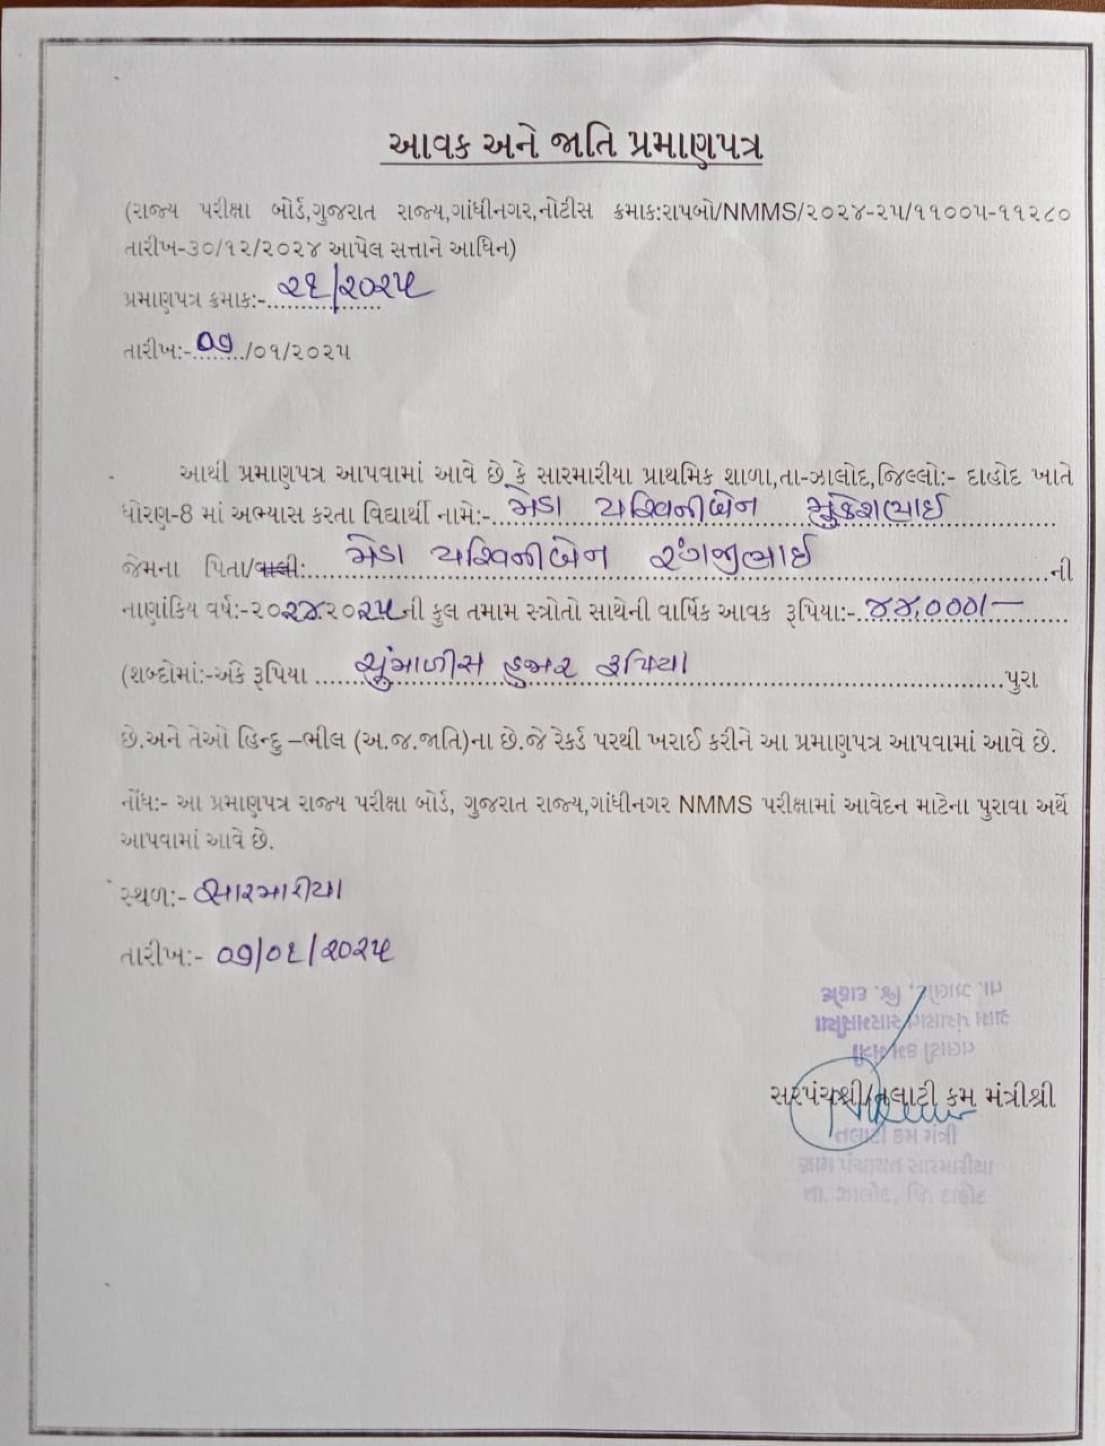 આવક અને જાતિ પ્રમાણપત્ર
(રાજ્ય પરીક્ષા બોર્ડ,ગુજરાત રાજ્ય,ગાંધીનગર,નોટીસ ક્રમાક:રાપબો/NMMS/૨૦૨૪-૨૫/૧૧૦૦૫-૧૧૨૮૦
તારીખ-૩૦/૧૨/૨૦૨૪ આપેલ સત્તાને આધિન)
પ્રમાણપત્ર ક્રમાક:-૨૧/૨૦૨૫
તારીખ:-૦૭/૦૧/૨૦૨૫
આથી પ્રમાણપત્ર આપવામાં આવે છે કે સારમારીયા પ્રાથમિક શાળા,તા-ઝાલોદ,જિલ્લો:- દાહોદ ખાતે
ધોરણ-8 માં અભ્યાસ કરતા વિદ્યાર્થી નામે:-મેડા યશ્વિનીબેન મુકેશભાઈ
જેમના પિતા/વાલી:મેડા યશ્વિનીબેન રંગજીભાઈ ની
નાણાંકિય વર્ષ:-૨૦૨૪.૨૦૨૫ની કુલ તમામ સ્ત્રોતો સાથેની વાર્ષિક આવક રૂપિયા:-૪૪,૦૦૦/-
(શબ્દોમાં:-અંકે રૂપિયા ચુંમાળીસ હજાર રૂપિયા પુરા
છે.અને તેઓ હિન્દુ –ભીલ (અ.જ.જાતિ)ના છે.જે રેકર્ડ પરથી ખરાઈ કરીને આ પ્રમાણપત્ર આપવામાં આવે છે.
નોંધ:- આ પ્રમાણપત્ર રાજ્ય પરીક્ષા બોર્ડ, ગુજરાત રાજ્ય,ગાંધીનગર NMMS પરીક્ષામાં આવેદન માટેના પુરાવા અર્થે
આપવામાં આવે છે.
સ્થળ:- સારમારીયા
તારીખ:- ૦૭/૦૧/૨૦૨૫
તા. ઝાલોદ, જિ. દાહોદ
ગ્રામ પંચાયત સારમારીયા
તલાટી કમ મંત્રી
સરપંચશ્રી/તલાટી કમ મંત્રીશ્રી
તલાટી કમ મંત્રી
ગ્રામ પંચાયત સારમારીયા
તા. ઝાલોદ, જિ. દાહોદ